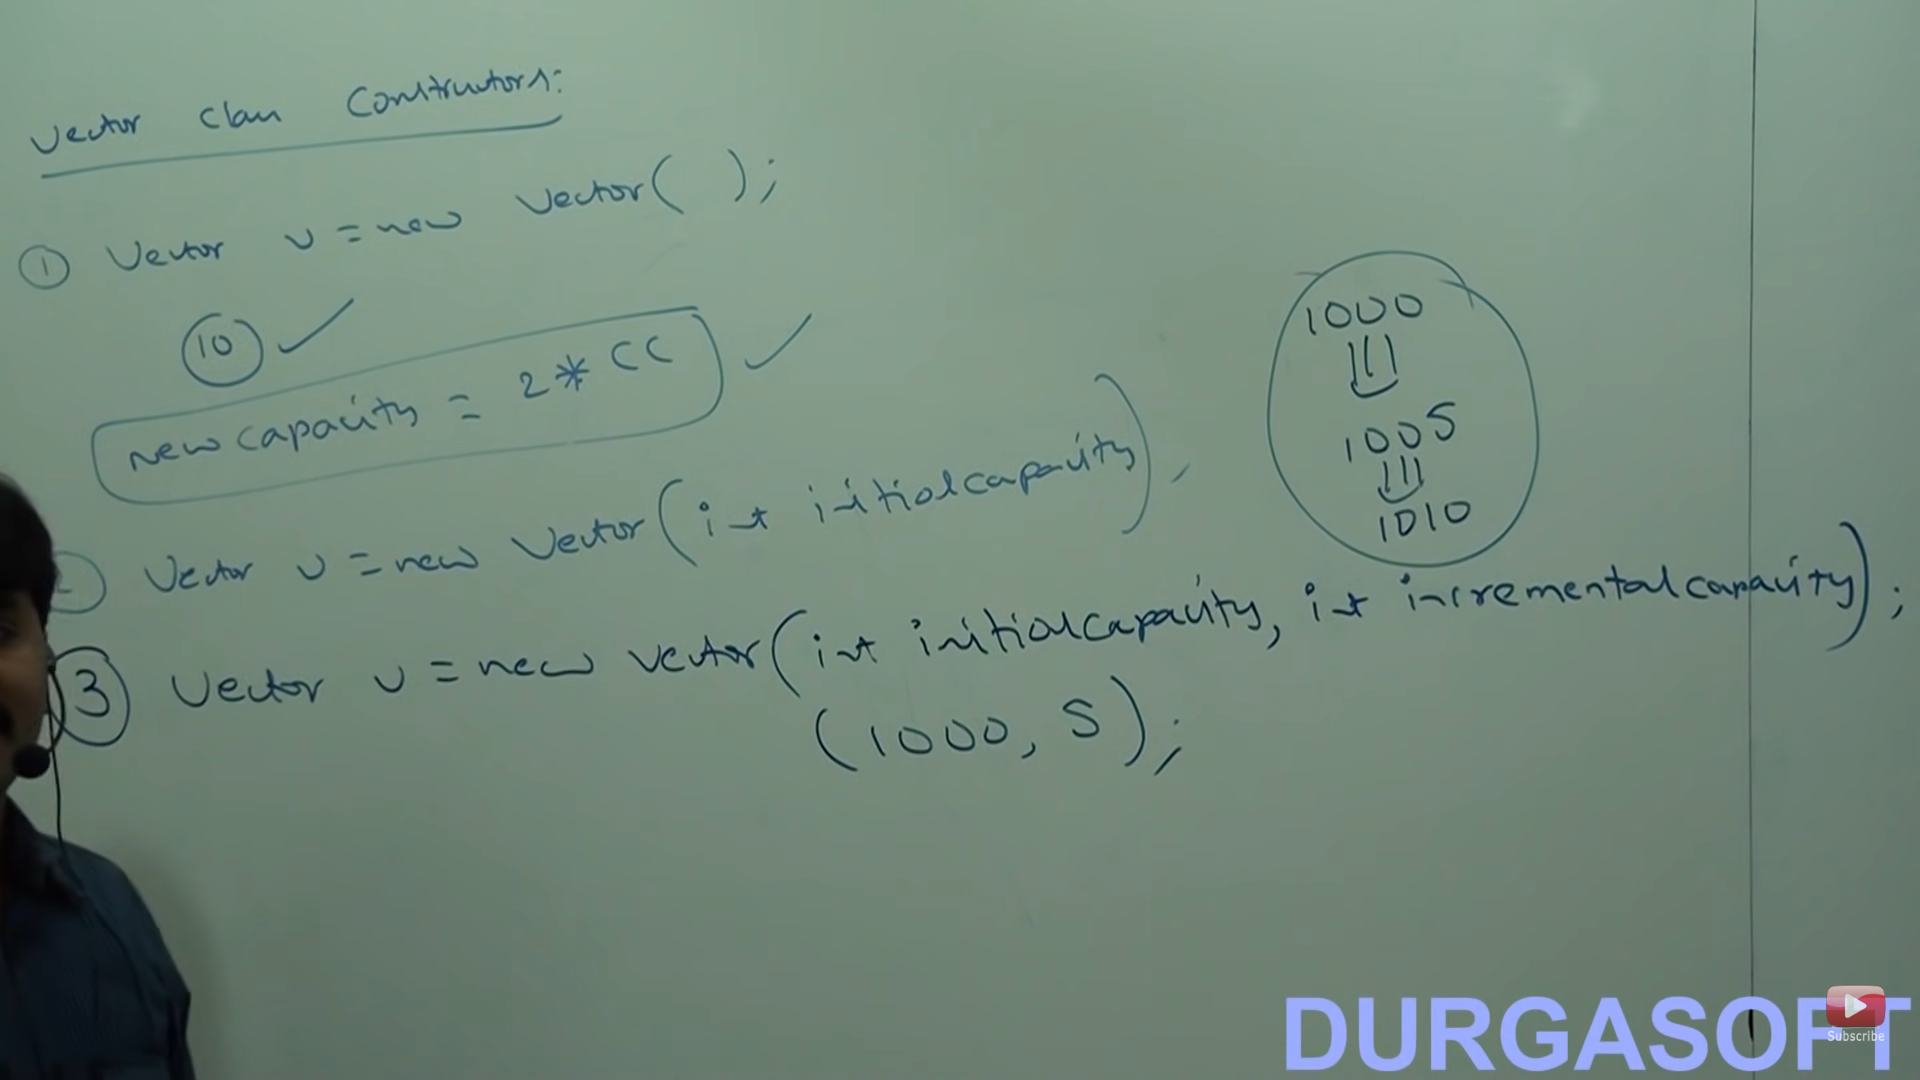 Vector class Constructors:
① Vector v = new Vector( );
10 ✓
new capacity = 2 * CC ✓
2 Vector v = new Vector(int initialcapacity);
③ Vector v = new Vector(int initialcapacity, int incrementalcapacity);
(1000, 5);
1000
1005
1010
DURGASOFT
Subscribe